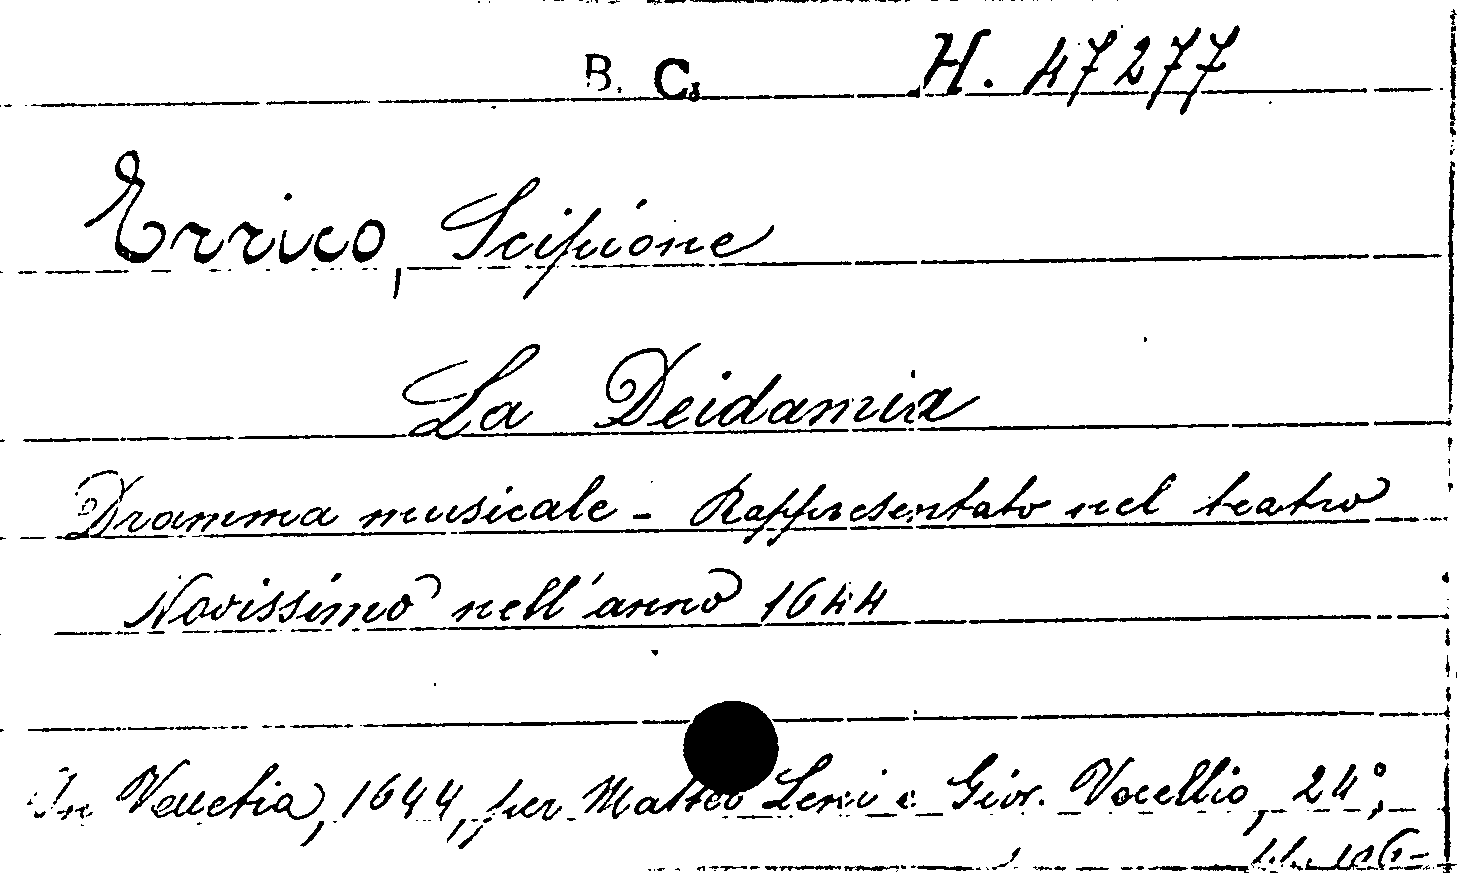 B. C. H. 47277
Errico, Scipione
La Deidamia
Dramma musicale - Rappresentato nel teatro
Novissimo nell'anno 1644
In Venetia, 1644, per Matteo Leni e Giov. Vecellio, 24°,
pp. 106-